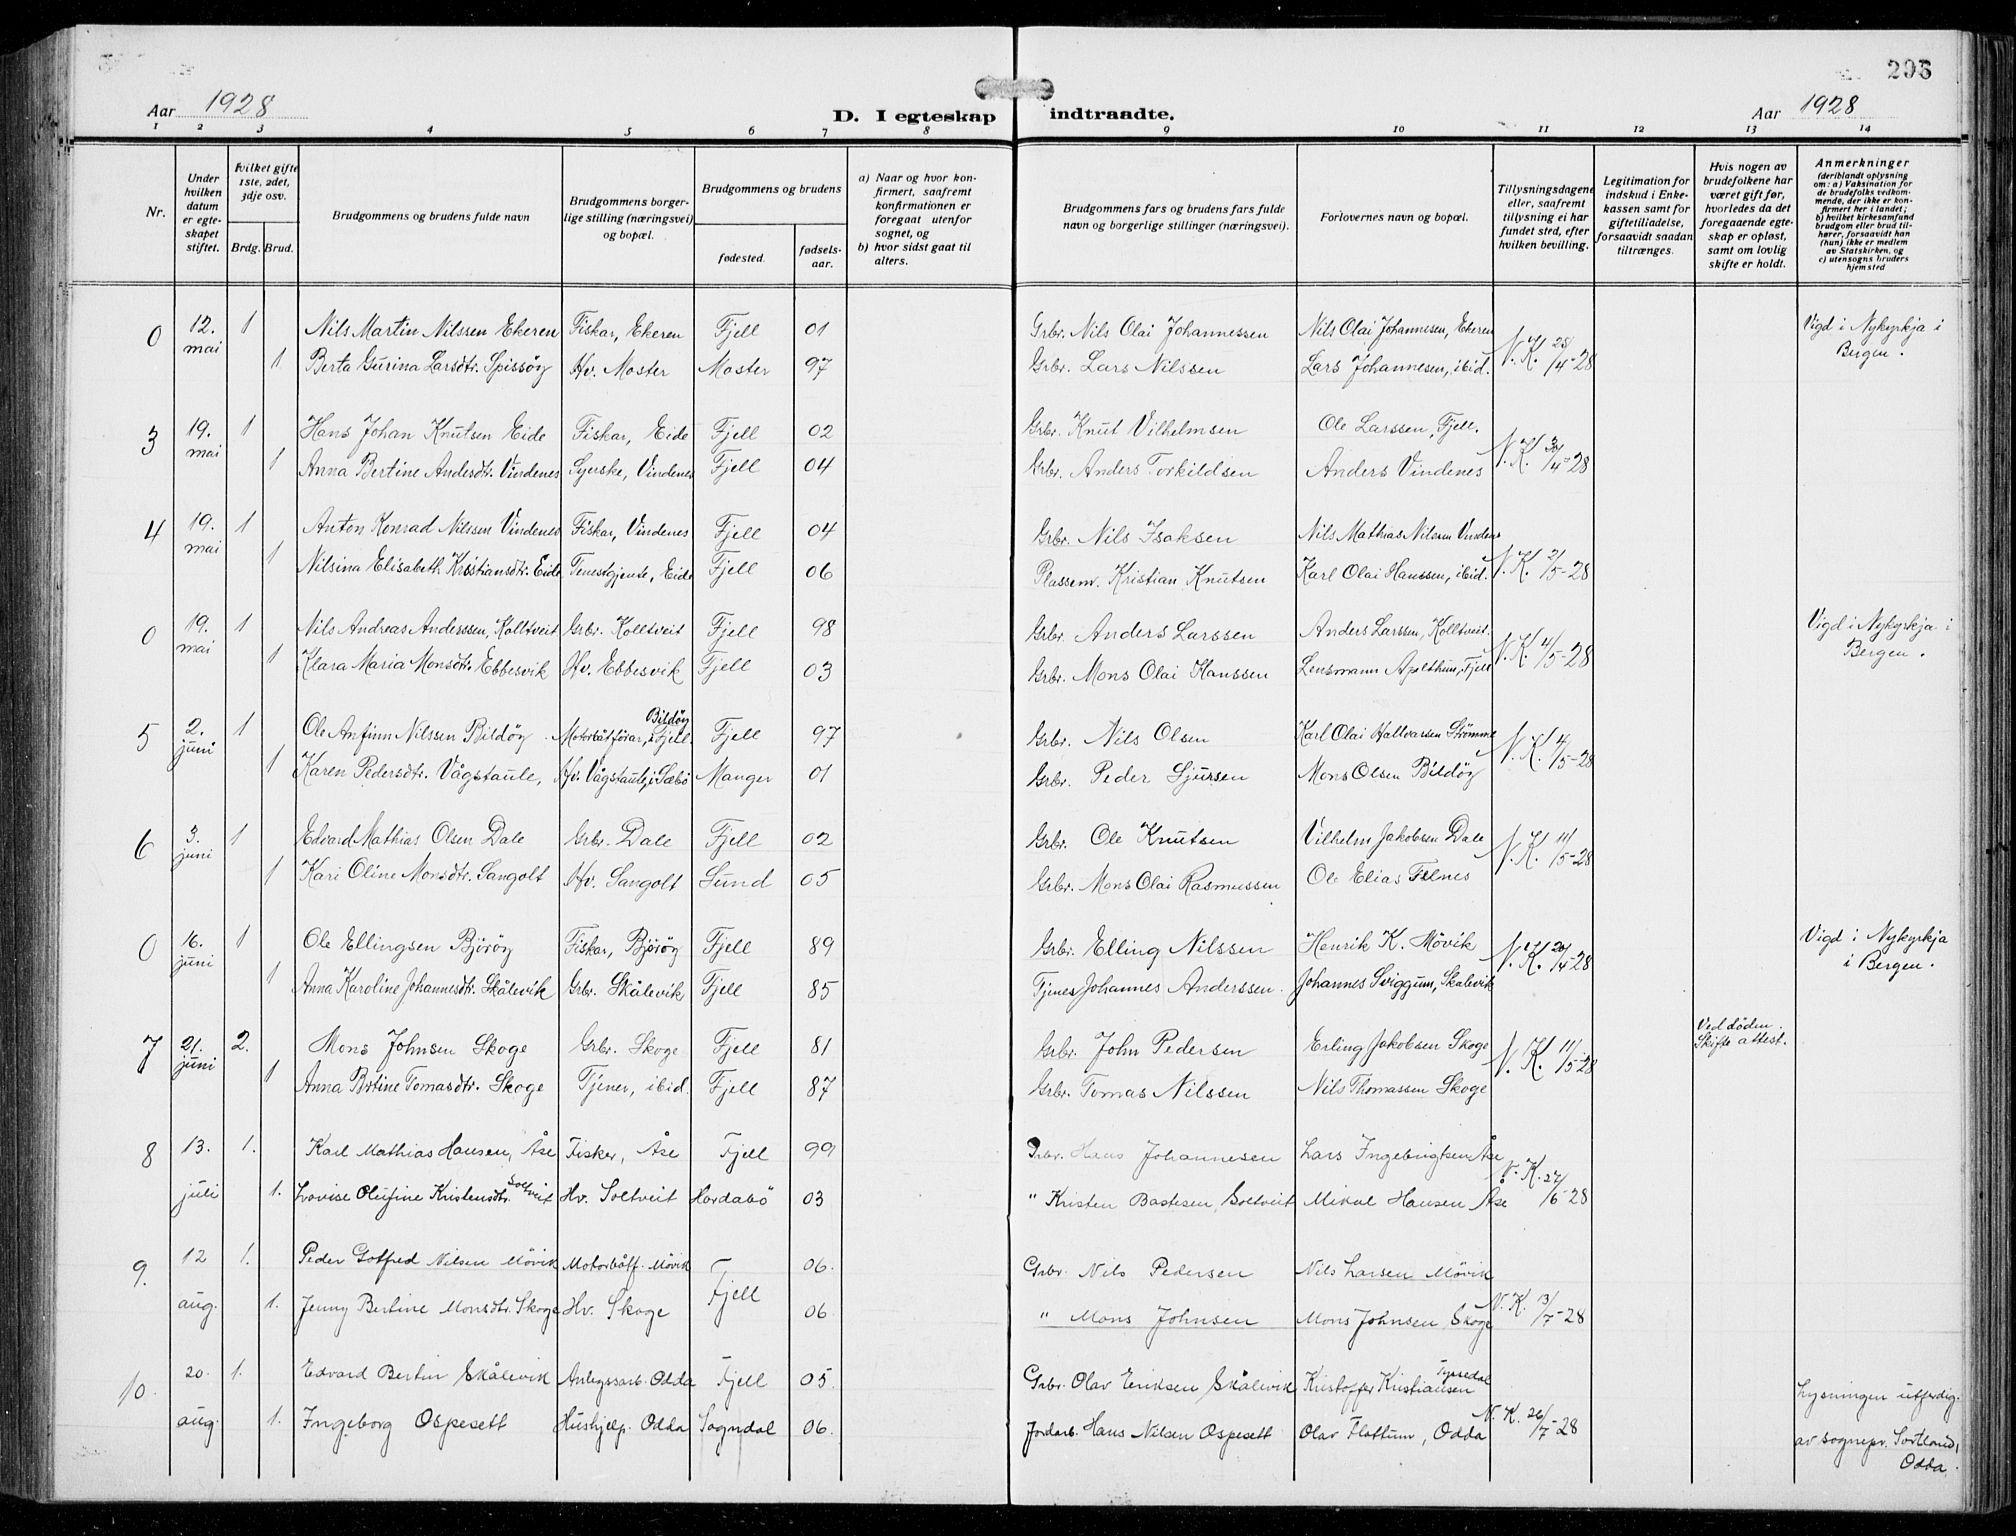 Aar 1928
D. I egteskap indtraadte.
Aar 1928
1 2 3 4 5 6 7 8 9 10 11 12 13 14
Nr.
Under hvilken datum er egteskapet stiftet.
Hvilket gifte 1ste, 2det, 3dje osv.
Brdg. Brud.
Brudgommens og brudens fulde navn
Brudgommens borgerlige stilling (næringsvei) og bopæl.
Brudgommens og brudens
fødested.
fødselsaar.
a) Naar og hvor konfirmert, saafremt konfirmationen er foregaat utenfor sognet, og
b) hvor sidst gaat til alters.
Brudgommens fars og brudens fars fulde navn og borgerlige stillinger (næringsvei).
Forlovernes navn og bopæl.
Tillysningsdagene eller, saafremt tillysning ei har fundet sted, efter hvilken bevilling.
Legitimation for indskud i Enkekassen samt for giftetilladelse, forsaavidt saadan tiltrænges.
Hvis nogen av brudefolkene har været gift før, hvorledes da det foregaaende egteskap er opløst, samt om lovlig skifte er holdt.
Anmerkninger (deriblandt oplysning om: a) Vaksination for de brudefolks vedkommende, der ikke er konfirmert her i landet; b) hvilket kirkesamfund brudgom eller brud tilhører, forsaavidt han (hun) ikke er medlem av Statskirken, og c) utensogns bruders hjemsted
0 12. mai 1 Nils Martin Nilssen Ekeren Fiskar, Ekeren Fjell 01 Grbr. Nils Olai Johannessen Nils Olai Johannesen, Ekeren N. K. 28/4-28 Vigd i Nykyrkja i Bergen.
1 Berta Gurina Larsdtr. Spissøy Hv. Moster Moster 97 Grbr. Lars Nilssen Lars Johannesen, ibid.
3 19. mai 1 Hans Johan Knutsen Eide Fiskar, Eide Fjell 02 Grbr. Knut Vilhelmsen Ole Larssen, Fjell. N. K. 30/4-28
1 Anna Bertine Andersdtr. Vindenes Syerske, Vindenes Fjell 04 Grbr. Anders Torkildsen Anders Vindenes
4 19. mai 1 Anton Konrad Nilssen Vindenes Fiskar, Vindenes Fjell 04 Grbr. Nils Isaksen Nils Mathias Nilsen Vindenes N. K. 2/5-28
1 Nilsina Elisabeth Kristiansdtr. Eide Tenestgjente, Eide Fjell 06 Plassem. Kristian Knutsen Karl Olai Hanssen, ibid.
0 19. mai 1 Nils Andreas Anderssen, Kolltveit Grbr. Kolltveit Fjell 98 Grbr. Anders Larssen Anders Larssen, Kolltveit. N. K. 4/5-28 Vigd i Nykyrkja i Bergen.
1 Klara Maria Monsdtr. Ebbesvik Hv. Ebbesvik Fjell 03 Grbr. Mons Olai Hanssen Lensmann Apelthun, Fjell
5 2. juni 1 Ole Anfinn Nilssen Bildøy Motorbåtførar, Bildøy i Fjell. Fjell 97 Grbr. Nils Olsen Karl Olai Hallvarsen Strømme N. K. 4/5-28
1 Karen Pedersdtr. Vågstaule, Hv. Vågstaule i Sæbø Manger 01 Grbr. Peder Sjursen Mons Olsen Bildøy
6 3. juni 1 Edvard Mathias Olsen Dale Grbr. Dale Fjell 02 Grbr. Ole Knutsen Vilhelm Jakobsen Dale N. K. 11/5-28
1 Kari Oline Monsdtr. Sangolt Hv. Sangolt Sund 05 Grbr. Mons Olai Rasmussen Ole Elias
0 16. juni 1 Ole Ellingsen Bjørøy Fiskar, Bjørøy Fjell 89 Grbr. Elling Nilssen Henrik K. Møvik N. K. 20/4-28 Vigd i Nykyrkja i Bergen.
1 Anna Karoline Johannesdtr. Skålevik Grbr. Skålevik Fjell 85 Tjener Johannes Anderssen. Johannes Sviggum, Skålevik
7 21. juni 2. Mons Johnsen Skoge Grbr. Skoge Fjell 81 Grbr. John Pedersen Erling Jakobsen Skoge N. K. 11/5-28 Ved døden. Skifte attest.
1 Anna Brtine Tomasdtr. Skoge Tjener, ibid. Fjell 87 Grbr. Tomas Nilssen Nils Thomassen Skoge
8 13. juli 1. Karl Mathias Hansen, Åse Fisker, Åse Fjell 99 Grbr. Hans Johannesen Lars Ingebrigtsen Åse N. K. 27/6-28
1. Lovise Olufine Kristensdtr. Soltveit Hv. Soltveit Hordabø 03 " Kristen Bastesen, Soltveit Mikal Hansen Åse
9. 12 aug. 1. Peder Gotfred Nilsen Møvik Motorbåtf. Møvik Fjell 06. Grbr. Nils Pedersen Nils Larsen Møvik N. K. 13/7-28
1. Jenny Bertine Monsdtr. Skoge Hv. Skoge 06. " Mons Johnsen Mons Johnsen Skoge
10. 20. aug. 1. Edvard Bertin Skålevik Anlegsarb. Odda Fjell 05. Grbr. Olav Eriksen Skålevik Kristoffer Kristiansen Tyssedal N. K. 26/7-28 Lysningen utferdig. av sognepr. Sortland, Odda.
1. Ingeborg Ospesett Hushjelp. Odda Sogndal 06. Jordarb. Hans Nilsen Ospesett Olav Flottum, Odda